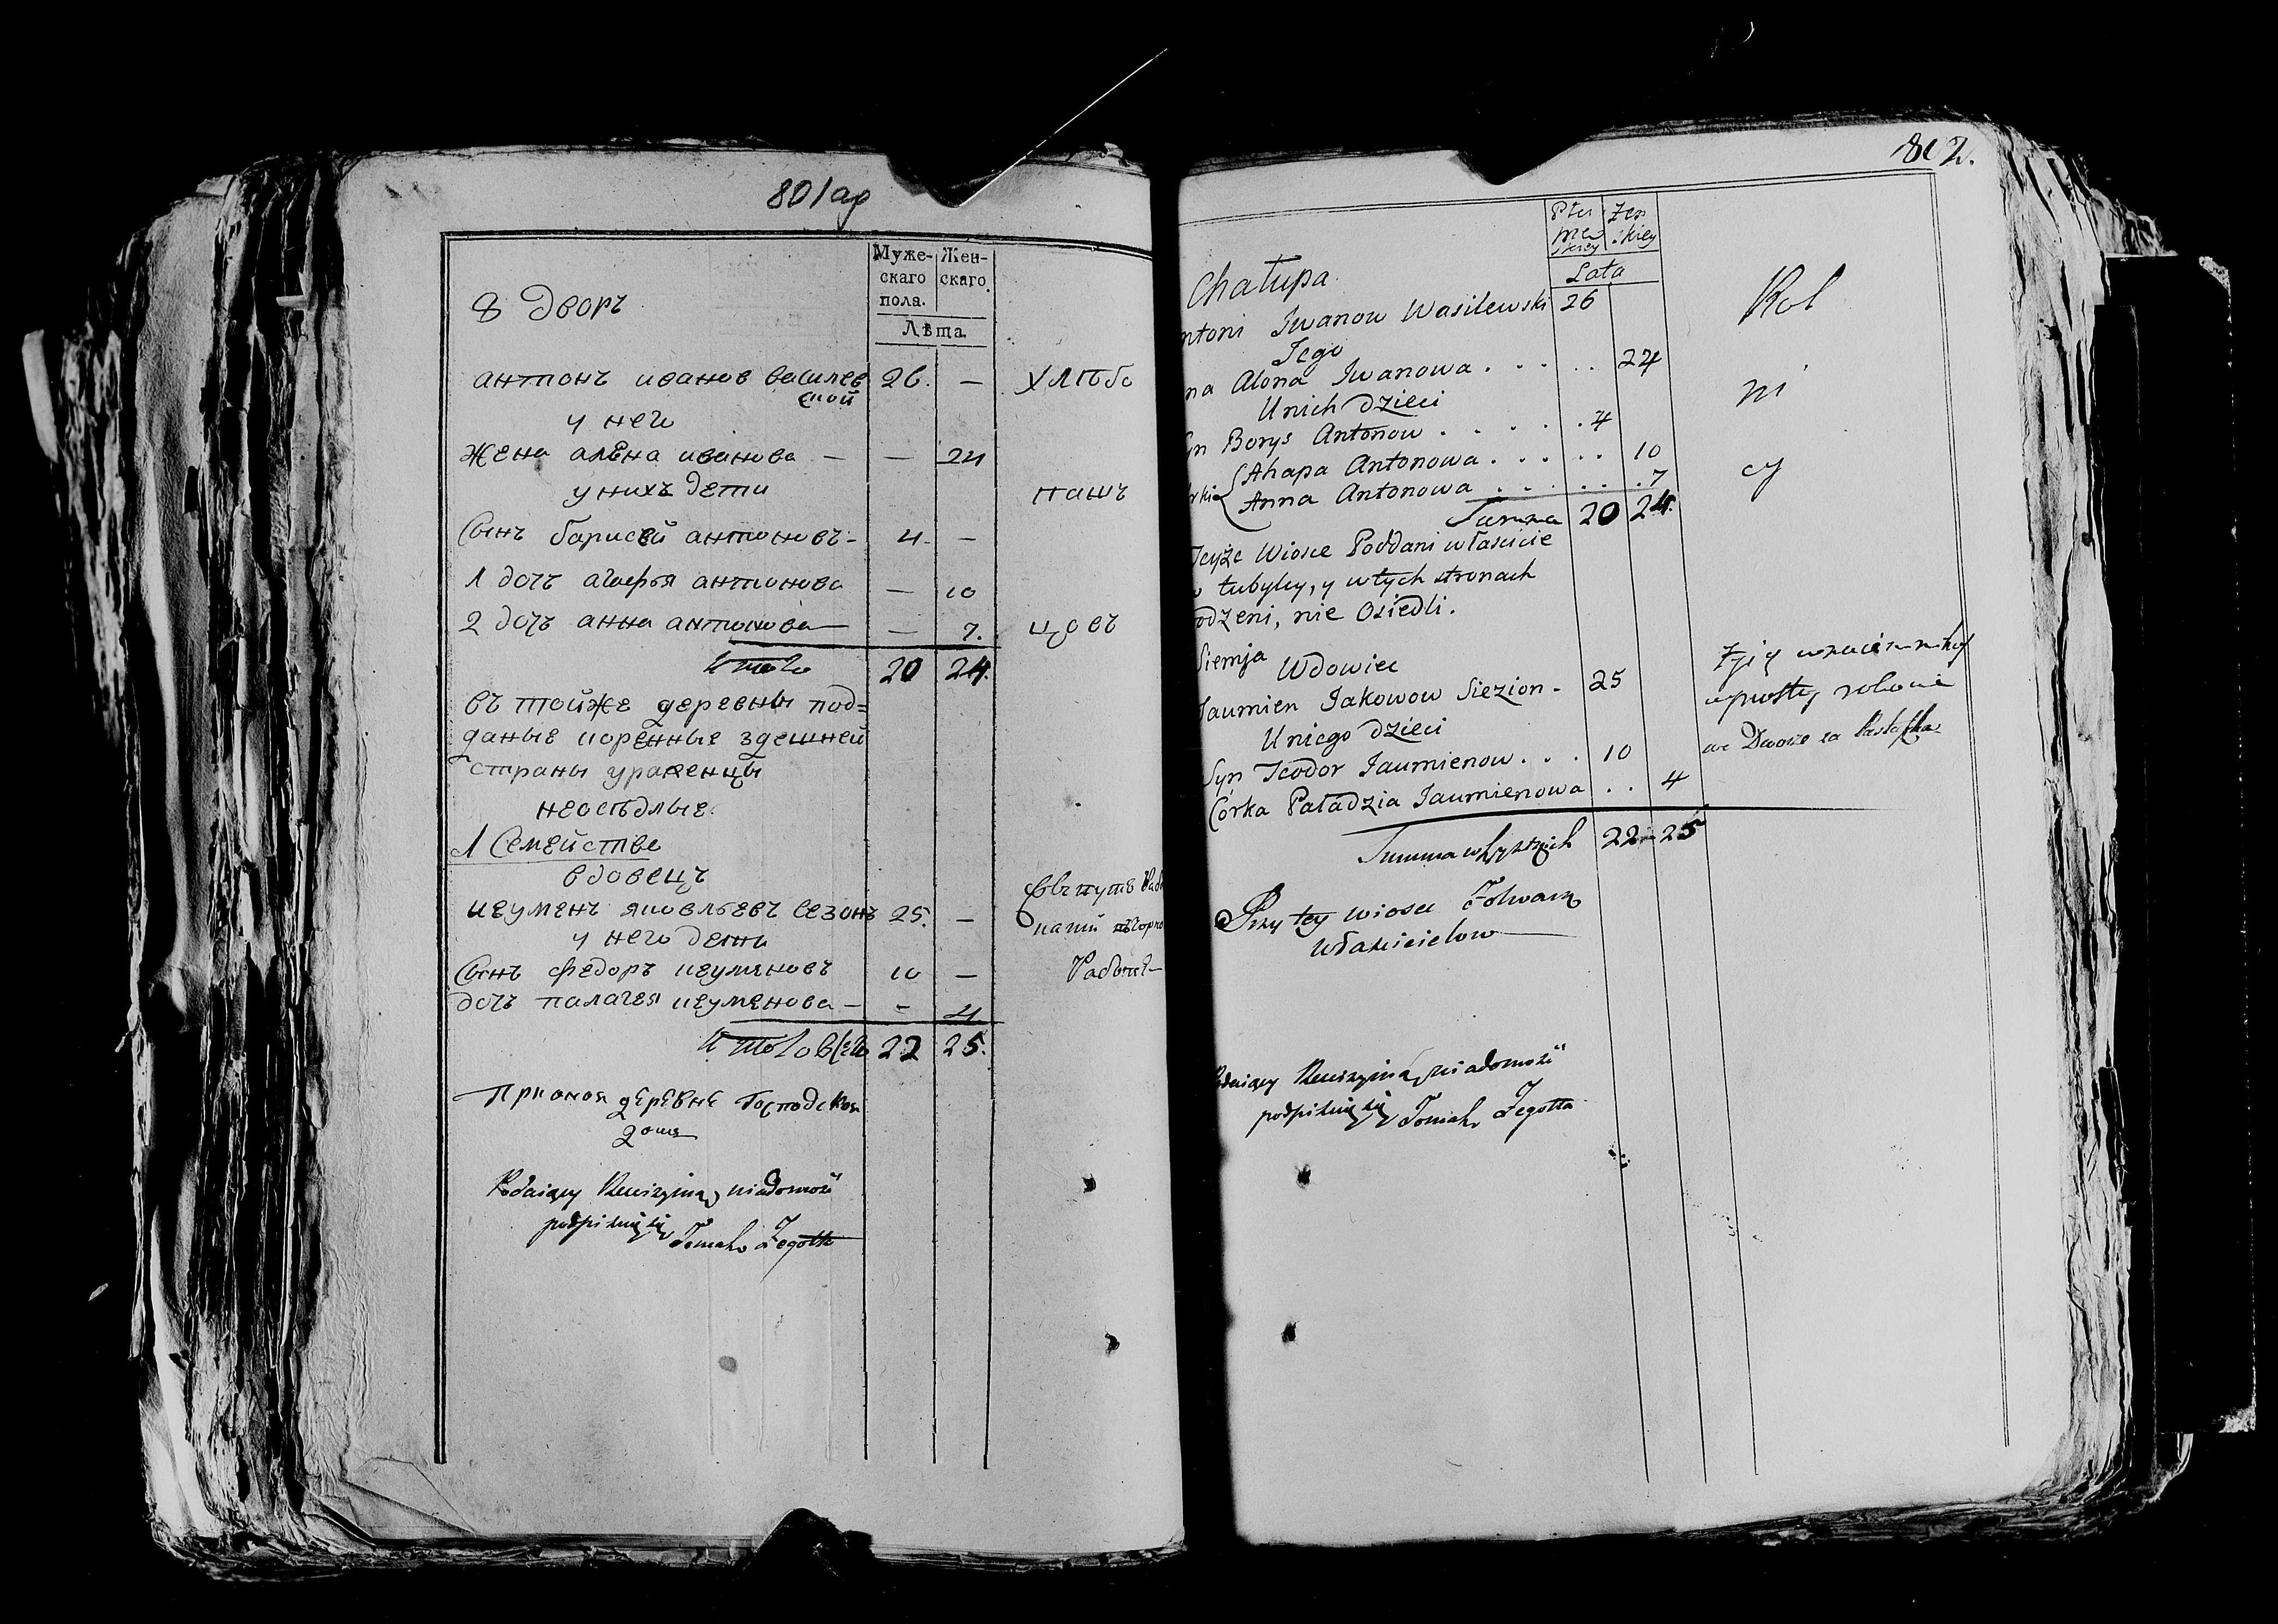 801ар
Муже-
скаго
пола.
Жен-
скаго.
Лѣта
8 дворъ
антонъ иванов василев
ской
26. —
хлѣбо
у него
жена алѐна иванова — — 24
у нихъ дети
пашъ
Сынъ барисѐй антоновъ - 4 —
1 дочъ агафья антонова — 10
2 дочъ анна антонова — — 7.
цовъ
Итого 20 24.
въ тойже деревны под=
даные корѐнные здешней
страны уракенцы
неосѣдлые.
1 Семействе
вдовецъ
игуменъ яковлевъ сезонъ 25. —
у него дети
Сынъ федоръ игуменовъ 10 —
Работе
дочъ палагея игуменова — - 4
Итого всѐго 22 25.
При оной деревне Господской
Podaiący Rewizyiną wiadomość
podpisuię się Tomasz Zegotta
802.
Płci
mę
skiey
żeń
skiey
Lata
Chałupa
ntoni Iwanow Wasilewski 26
Rol
Jego
na Alona Iwanowa . . . . . 24
ni
Unich dzieci
yn Borys Antonow . . . . . 4
rki Ahapa Antonowa . . . . . 10
cy
Anna Antonowa . . . . . . 7
Summa 20 24.
Teyże Wiosce Poddani właście
tubylcy, y wtych stronach
odzeni, nie Osiedli.
Siemja
Wdowiec
Jaumien Jakowow Siezion - 25
Uniego dzieci
Syn Teodor Jaumienow . . . 10
Córka Paładzia Jaumienowa . . 4
Summa wszystkich 22 - 25
Przy tey wiosce Folwark
Właścicielow
Podaiący Rewizyiną wiadomość
podpisuię się Tomasz Zegotta